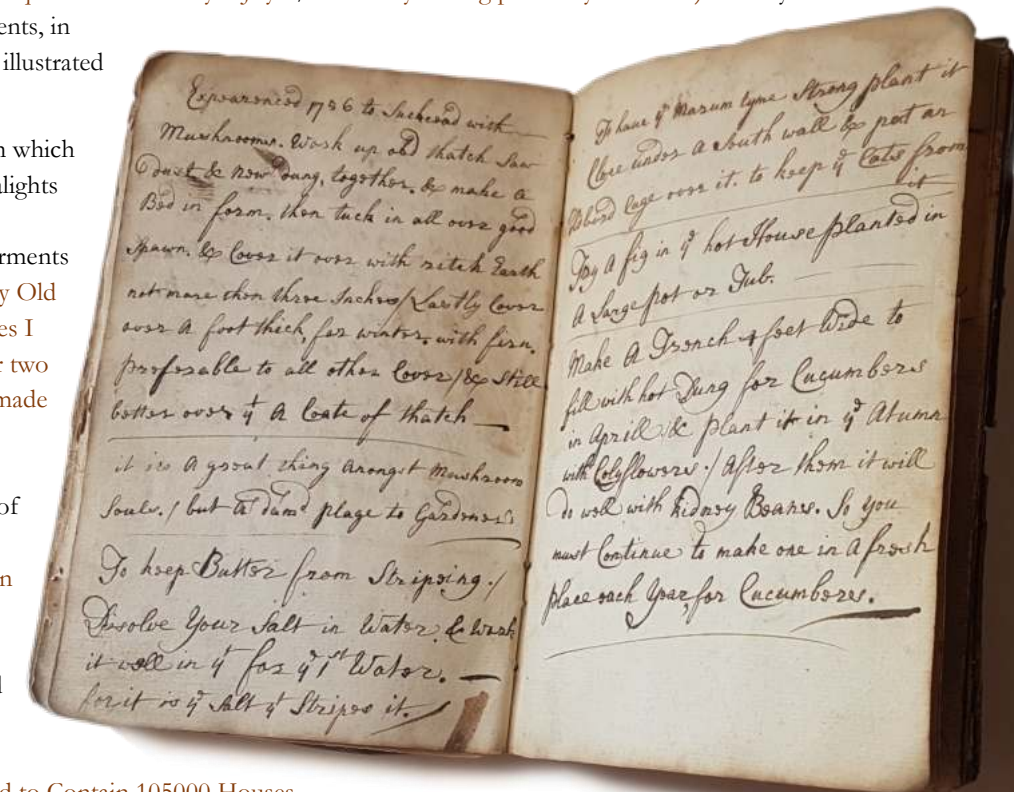 ents, in
illustrated
n which
lights
rments
y Old
es I
r two
made
of
n
d to Contain 105000 Houses
Expearenced 1786 to Sucksead with
Mushrooms. Work up old thatch Saw
Doust & New Dung, together, & make a
Bed in form, then tuck in all over good
Spawn. & Cover it over with ritch Earth
not more then three Inches / Lastly Cover
over A foot thick, for winter, with firn,
preferable to all other Cover / & Still
better over yt A Coate of thatch
it is A great thing Amongst Mushroom
Souls. / but a dam'd plage to Gardeners
To keep Butter from Stripeing. /
Disolve Your Salt in Water & Work
it well in yt for ye 1st Water.
for it is ye Salt yt Stripes it. /
To have ye Marum tyme Strong plant it
Close under A South wall & put an
Bird Cage over it. to keep ye Cats from
it
Try A fig in ye hot House planted in
A Large pot or Tub.
Make A Trench 4 feet Wide to
fill with hot Dung for Cucumbers
in Aprill & plant it in ye Atumn
with Colyflowers. / After them it will
do well with Kidney Beanes. So you
must Continue to make one in A fresh
place each Year, for Cucumberes.